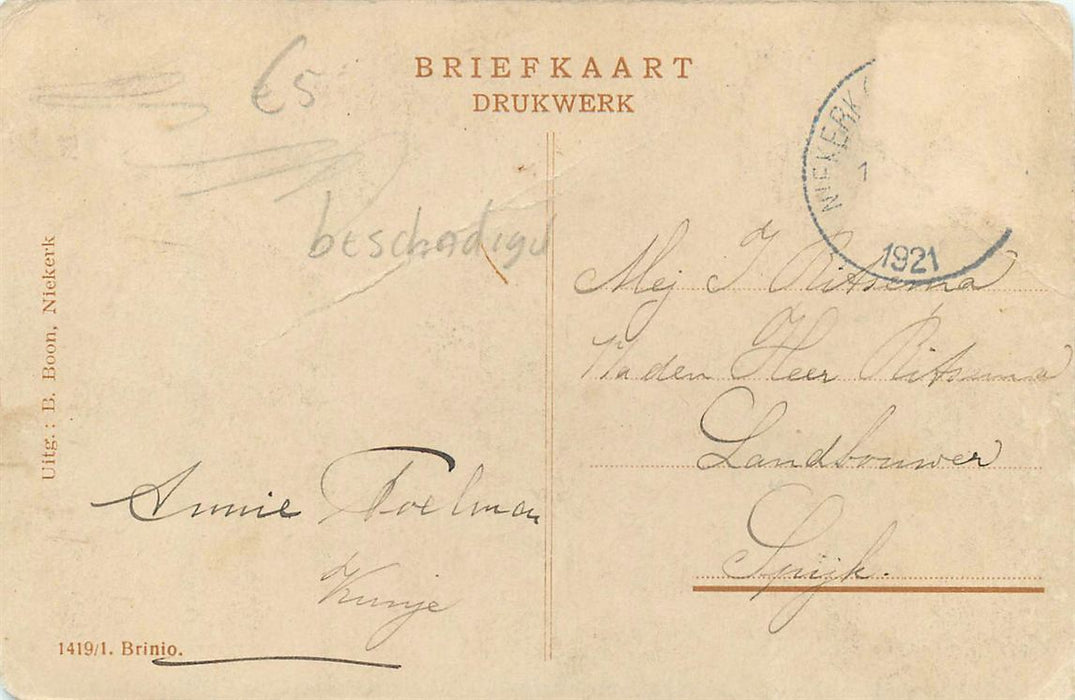 BRIEFKAART
DRUKWERK
€5
beschadigd
NIEKERK
1
1921
Uitg.: B. Boon, Niekerk
Mej J Ritsema
Va den Heer Ritsema
Landbouwer
Spijk.
Annie Poelman
1419/1. Brinio.